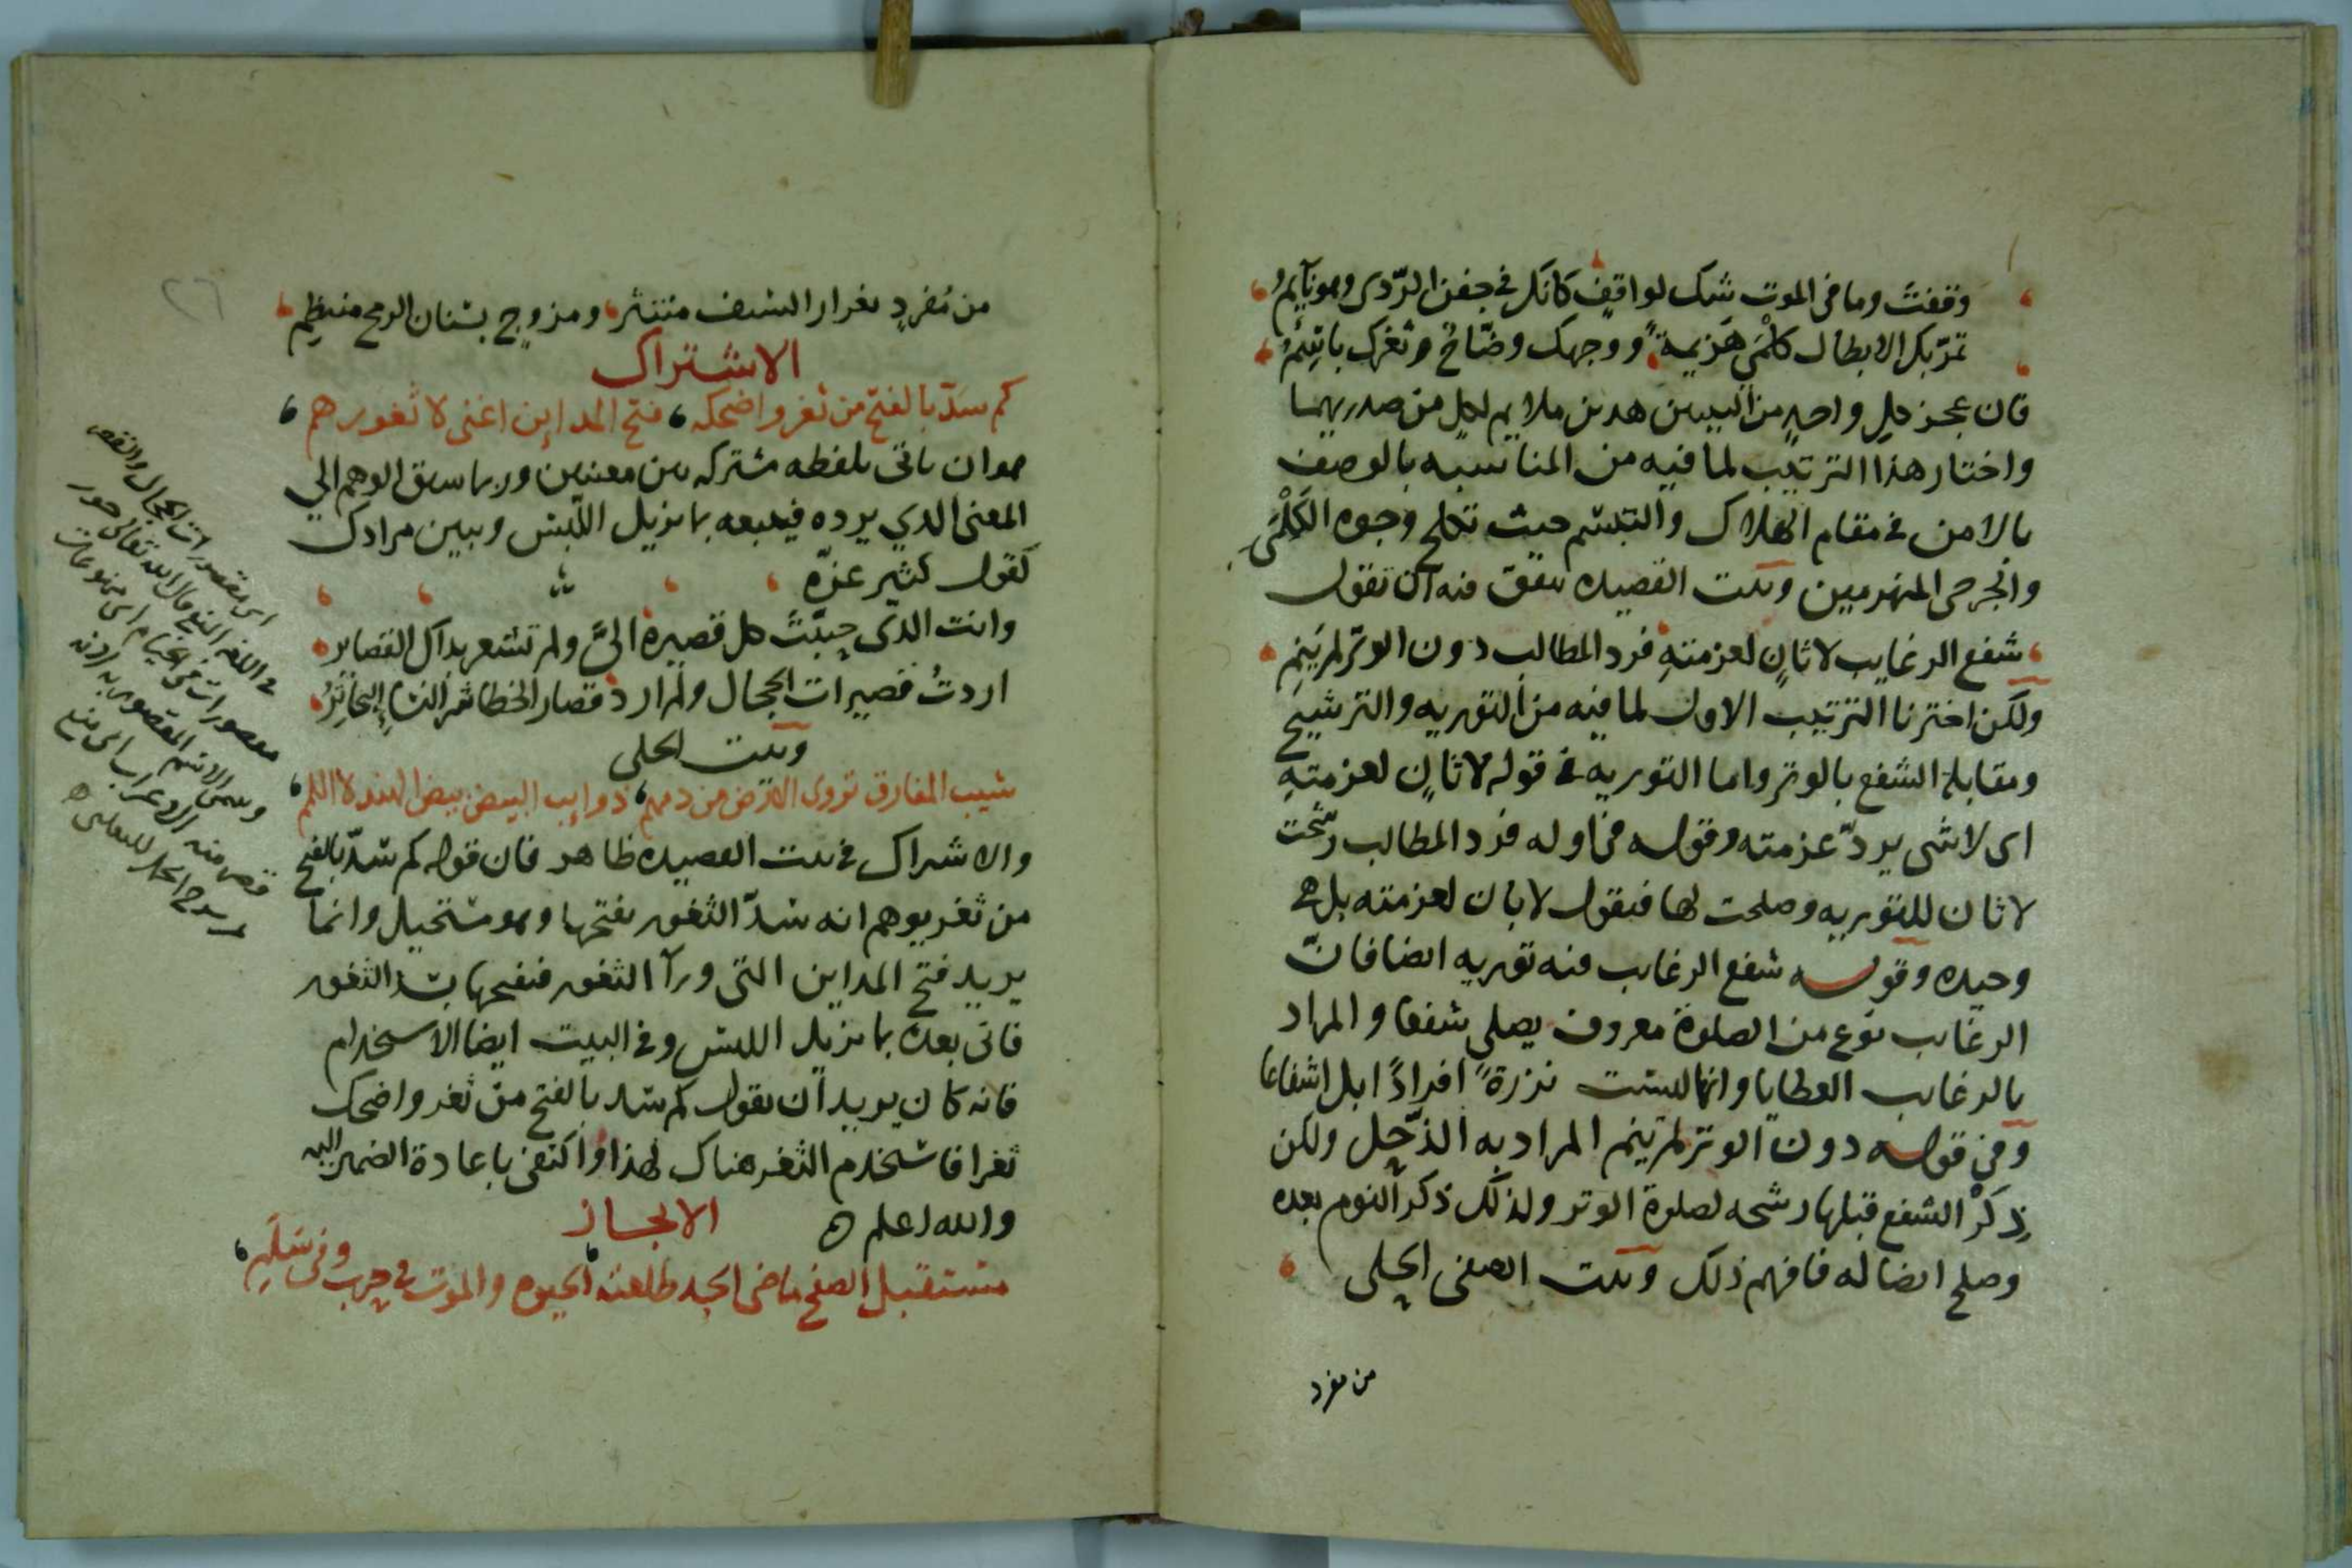 وقفتَ وما فى الموت شك لواقفٍ كانك فى جفن الرّدى وهو نايمُ
تمرّ بك الابطال كلْمَى هَزيمةً ووجهك وضّاحٌ وثغرك باسِمُ
فان عجز كلِ واحدٍ من البيتين هدين ملايم لكلٍ من صدريهما
واختار هذا الترتيب لما فيه من المناسبه بالوصف
بالامن فى مقام الهلاك والتبسّم حيث تكلح وجوه الكَلْمَى
والجرحى المنهزمين وبيت القصيده يتفق فيه ان تقول
شفع الرغايب لا ثانٍ لعزمتهِ فرد المطالب دون الوتر لم يَنمِ
ولكن اخترنا الترتيب الاول لما فيه من التوريه والترشيح
ومقابلة الشفع بالوتر واما التوريه فى قوله لا ثانٍ لعزمتهِ
اى لا شى يردّ عزمته وقوله فى اوله فرد المطالب رشّحت
لا ثان للتوريه وصلحت لها فيقول لا ثان لعزمته بل هى
وحيده وقوله شفع الرغايب فيه توريه ايضا فانّ
الرغايب نوع من الصلوة معروف يصلى شفعا والمراد
بالرغايب العطايا وانها ليست نزرةً افرادًا بل اشفاعا
وفى قوله دون الوتر لم ينم المراد به الذّحل ولكن
ذِكرُ الشفع قبلها رشحه لصلوة الوتر ولذلك ذكر النوم بعده
وصلح ايضا له فافهم ذلك وبيت الصفى الحلى
من مفرد
٢٦
من مُفردٍ بغرار السّيف منتثر ومزوج بسنان الرمح منتظِم
الاشتراك
كم سدّ بالفتح من ثغر واضحكه فتح المداين اغنى لا ثغورهم
هو ان ياتى بلفظه مشتركه بين معنيين وربما سبق الوهم الي
المعنى الدي يرده فيتبعه بما يزيل اللّبس ويبين مرادك
كقول كثير عزّه
وانت الدى حبّبْتَ كل قصيره الىَّ ولم تشعر بداك القصاير
اردتُ قصيرات الحجال ولم ارد قصار الخطا شر النساءِ البحاتِرُ
وبيت الحلى
شيب المفارق تروى الارض من دمهم ذوايب البيض بيض الهند لا اللمم
والاشتراك فى بيت القصيده ظاهر فان قوله كم سدّ بالفتح
من ثغر يوهم انه سدّ الثغور بفتحها وهو مستحيل وانما
يريد فتح المداين التى ورآ الثغور فبفتحها سد الثغور
فاتى بعده بما يزيل اللبس وفى البيت ايضا الاستخدام
فانه كان يريد ان يقول كم سد بالفتح من ثغر واضحك
ثغرا فاستخدم الثغر هناك لهذا واكتفى باعادة الضمير اليه
والله اعلم
الايجاز
مستقبل الصفح ماضى الحد طلعته الحيوه والموت فى حرب وفى سَلَمِ
اى مقصورات الحجال والقصر
فى اللغه المنع قال الله تعالى حور
مقصورات فى الخيام اى ممنوعات